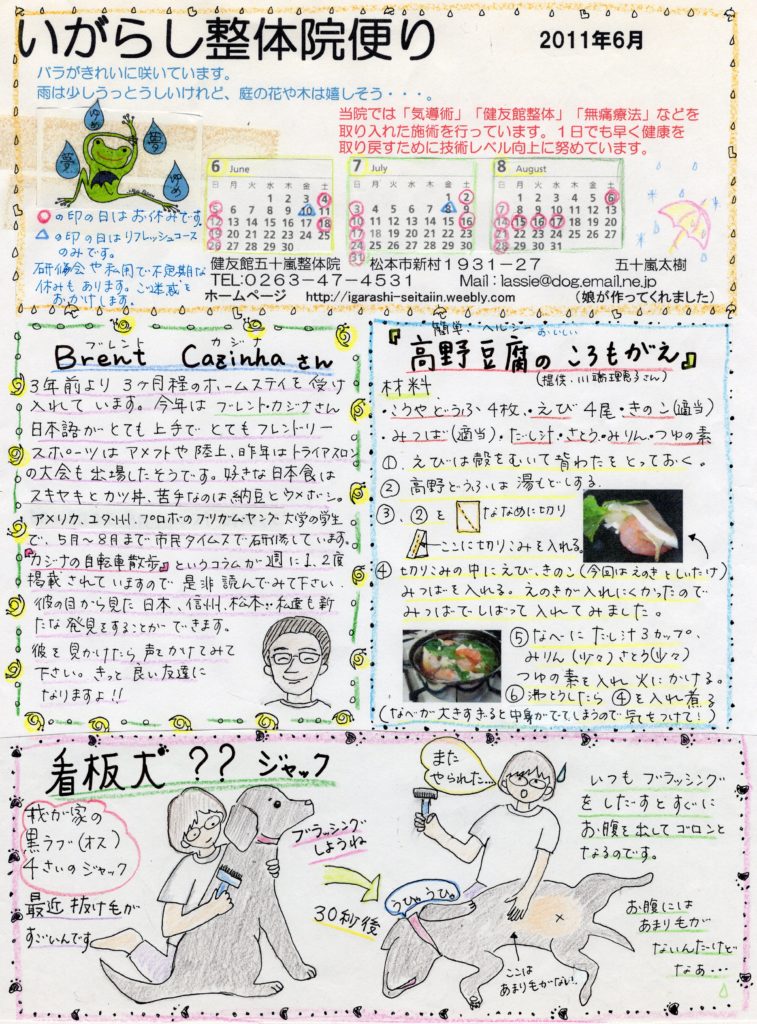 いがらし整体院便り
2011年6月
バラがきれいに咲いています。
雨は少しうっとうしいけれど、庭の花や木は嬉しそう・・・。
当院では「気導術」「健友館整体」「無痛療法」などを
取り入れた施術を行っています。1日でも早く健康を
取り戻すために技術レベル向上に努めています。
ゆめ
夢
夢
ゆめ
6 June
日 月 火 水 木 金 土
1 2 3 4
5 6 7 8 9 10 11
12 13 14 15 16 17 18
19 20 21 22 23 24 25
26 27 28 29 30
7 July
日 月 火 水 木 金 土
1 2
3 4 5 6 7 8 9
10 11 12 13 14 15 16
17 18 19 20 21 22 23
24 25 26 27 28 29 30
31
8 August
日 月 火 水 木 金 土
1 2 3 4 5 6
7 8 9 10 11 12 13
14 15 16 17 18 19 20
21 22 23 24 25 26 27
28 29 30 31
○の印の日はお休みです。
△の印の日はリフレッシュコース
のみです。
研修会や私用で不定期な
休みもあります。ご迷惑を
おかけします。
健友館五十嵐整体院 松本市新村1931-27 五十嵐太樹
TEL:0263-47-4531 Mail:lassie@dog.email.ne.jp
ホームページ http://igarashi-seitaiin.weebly.com (娘が作ってくれました)
ブレント カジナ
Brent Cazinhaさん
3年前より3ヶ月程のホームステイを受け
入れています。今年はブレント・カジナさん
日本語がとても上手でとてもフレンドリー
スポーツはアメフトや陸上、昨年はトライアスロン
の大会も出場したそうです。好きな日本食は
スキヤキとカツ丼、苦手なのは納豆とウメボシ。
アメリカ、ユタ州、プロボのブリガムヤング大学の学生
で、5月~8月まで市民タイムスで研修しています。
『カジナの自転車散歩』というコラムが週に1、2度
掲載されていますので是非読んでみて下さい。
彼の目から見た日本、信州、松本…私達も新
たな発見をすることができます。
彼を見かけたら声をかけてみて
下さい。きっと良い友達に
なりますよ!!
簡単・ヘルシー おいしい
『高野豆腐のころもがえ』
(提供・川諭理恵子さん)
材料
・こうやどうふ4枚・えび4尾・きのこ(適当)
・みつば(適当)・だし汁・さとう・みりん・つゆの素
①、えびは殻をむいて背わたをとっておく。
② 高野どうふは湯もどしする。
③、②を ななめに切り
←ここに切りこみを入れる。
④ 切りこみの中にえび、きのこ(今回はえのきとしいたけ)
みつばを入れる。えのきが入れにくかったので
みつばでしばって入れてみました。
⑤ なべにだし汁3カップ、
みりん(少々)さとう(少々)
つゆの素を入れ火にかける。
⑥ 沸とうしたら④を入れ煮る
(なべが大きすぎると中身がでてしまうので気をつけて!)
看板犬?? ジャック
我が家の
黒ラブ(オス)
4さいのジャック
最近抜け毛が
すごいんです
ブラッシング
しようね
30秒後
また
やられた…
うひゃうひゃ
ここは
あまり毛がない!
いつもブラッシング
をしだすとすぐに
お腹を出してゴロンと
なるのです。
お腹には
あまり毛が
ないんだけど
なあ…